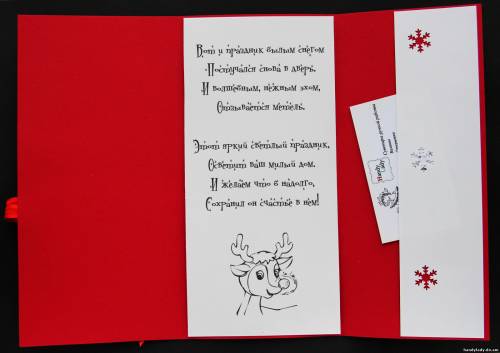 Вот и праздник белым снегом
Постучался снова в дверь.
И волшебным, нежным эхом,
Отзывается метель.
Этот яркий светлый праздник,
Осветит ваш милый дом.
И желаем что б надолго,
Сохранил он счастье в нем!
Handy
Lady
handylady.do.am